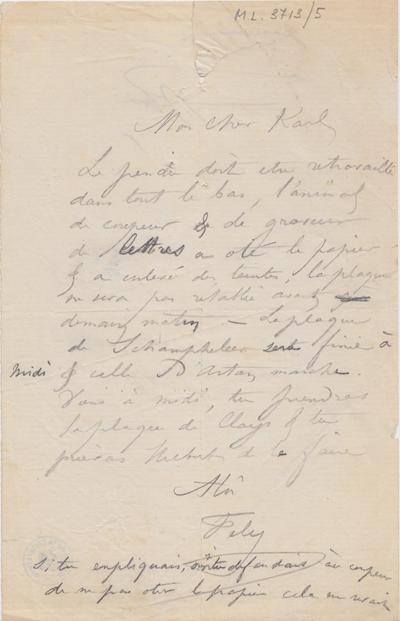 M.L. 3713/5
Mon cher Karl
Le pendu doit être retravaillé
dans tout le bas, l'animal
de coupeur & de graveur
de lettres a oté le papier
& a enlevé des teintes, la plaque
ne sera pas rétablie avant
demain matin – La plaque
de Schampheleer sera finie à
midi & celle D'Artan marche.
Viens à midi, tu prendras
la plaque de Clays & tu
prieras de la faire
Fély
si tu expliquais, au coupeur
de ne pas oter le papier cela